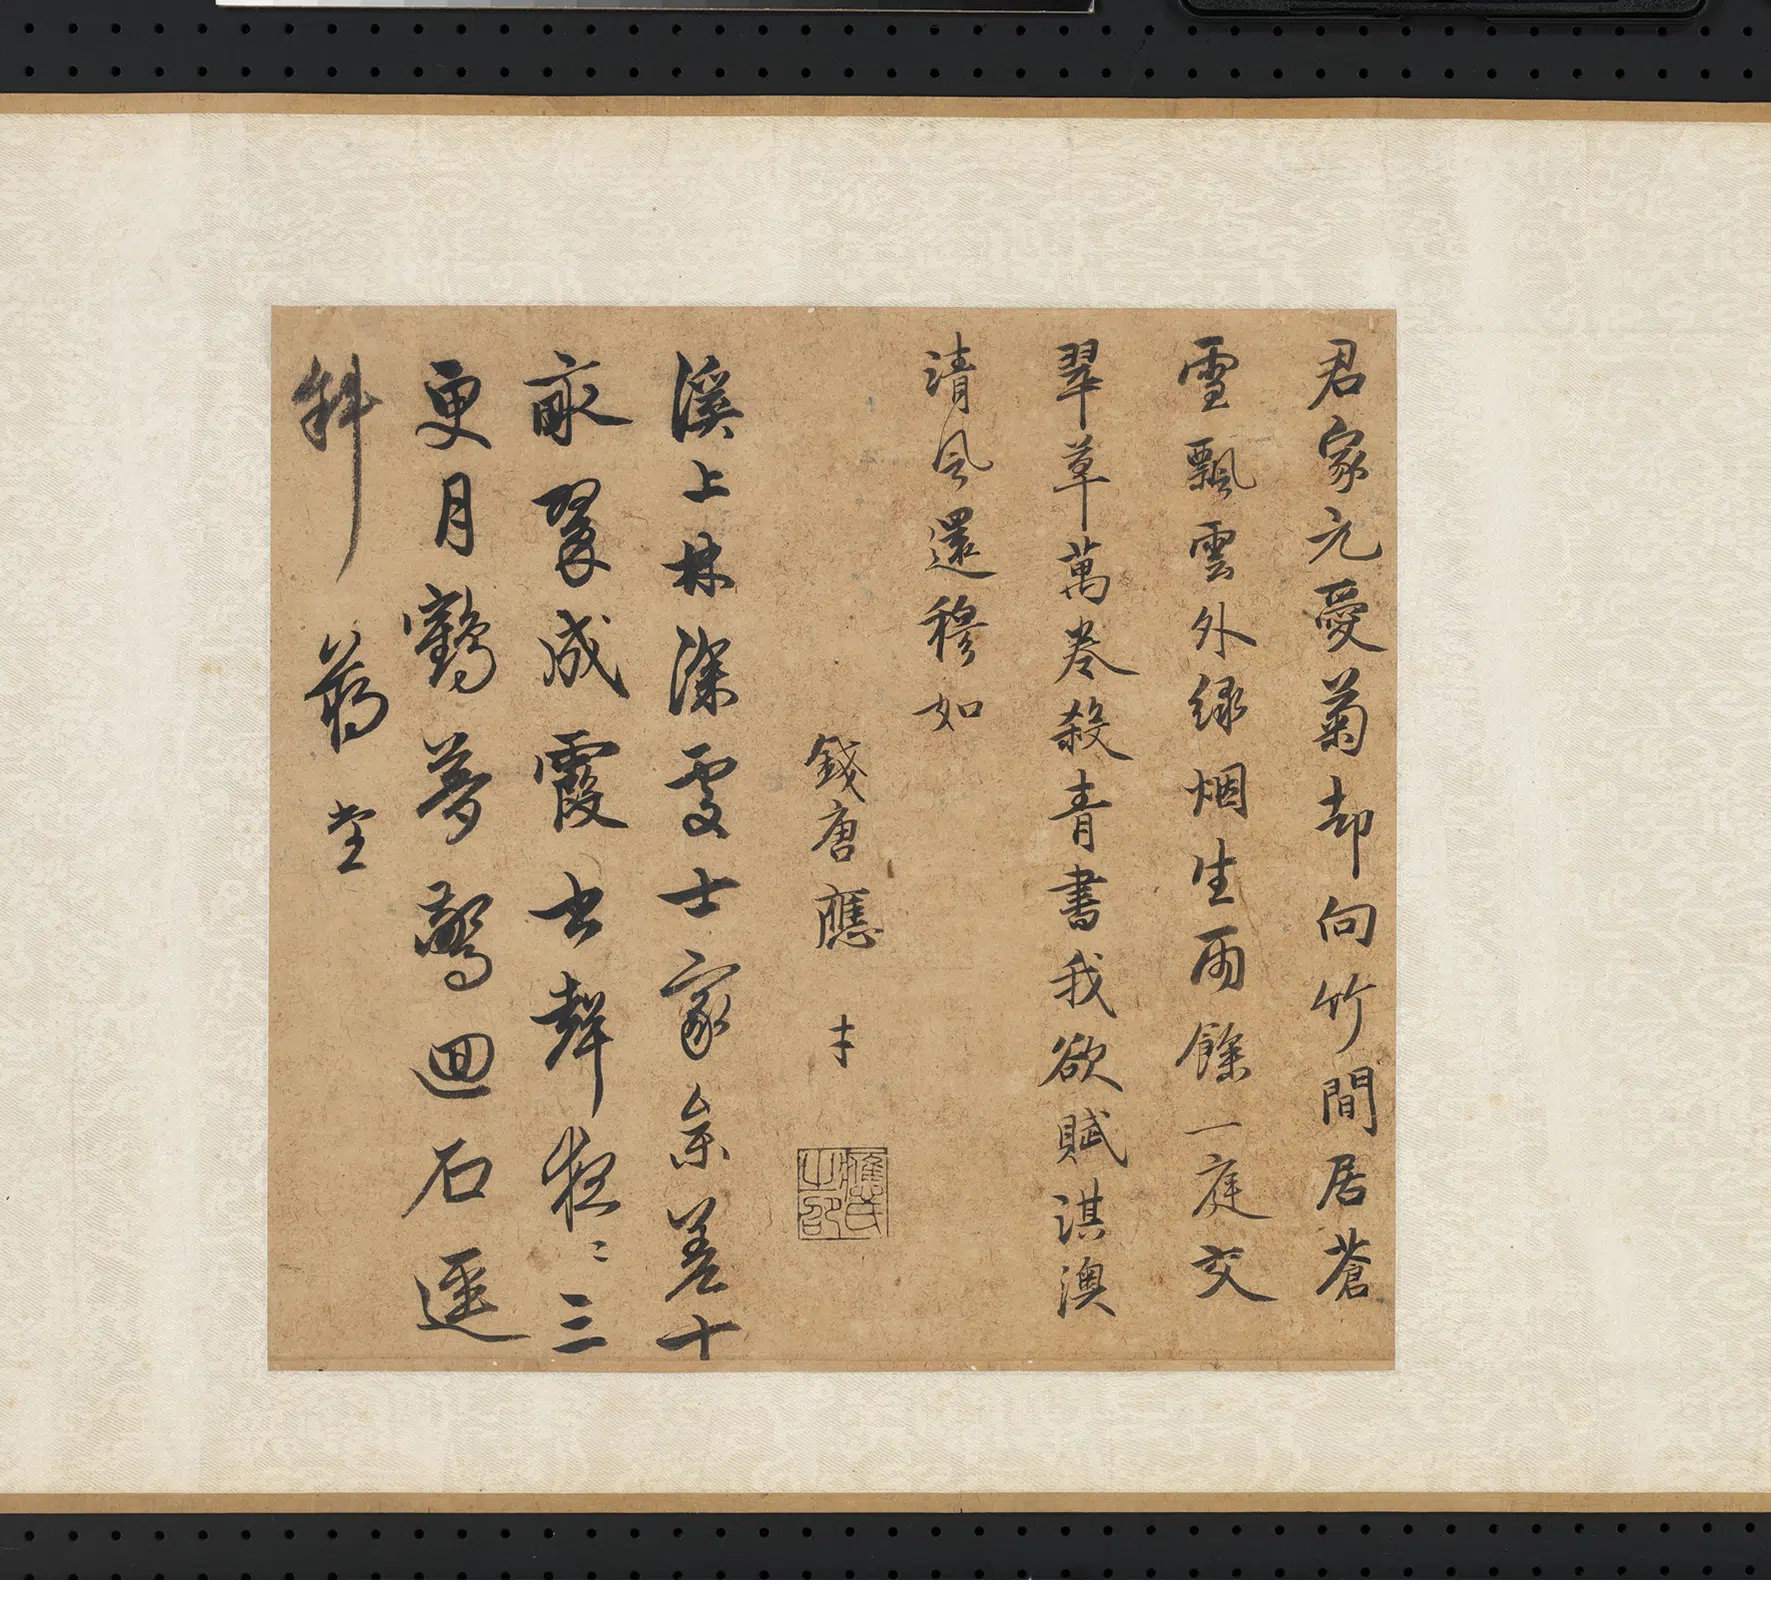 君家元愛菊却向竹間居蒼
雪飄雲外綠烟生雨餘一庭交
翠草萬卷殺青書我欲賦淇澳
清風還穆如
錢唐應才
應氏之印
溪上林深處士家參差十
畝翠成霞書聲夜〻三
更月鶴夢驚迴石逕
斜 蔣堂